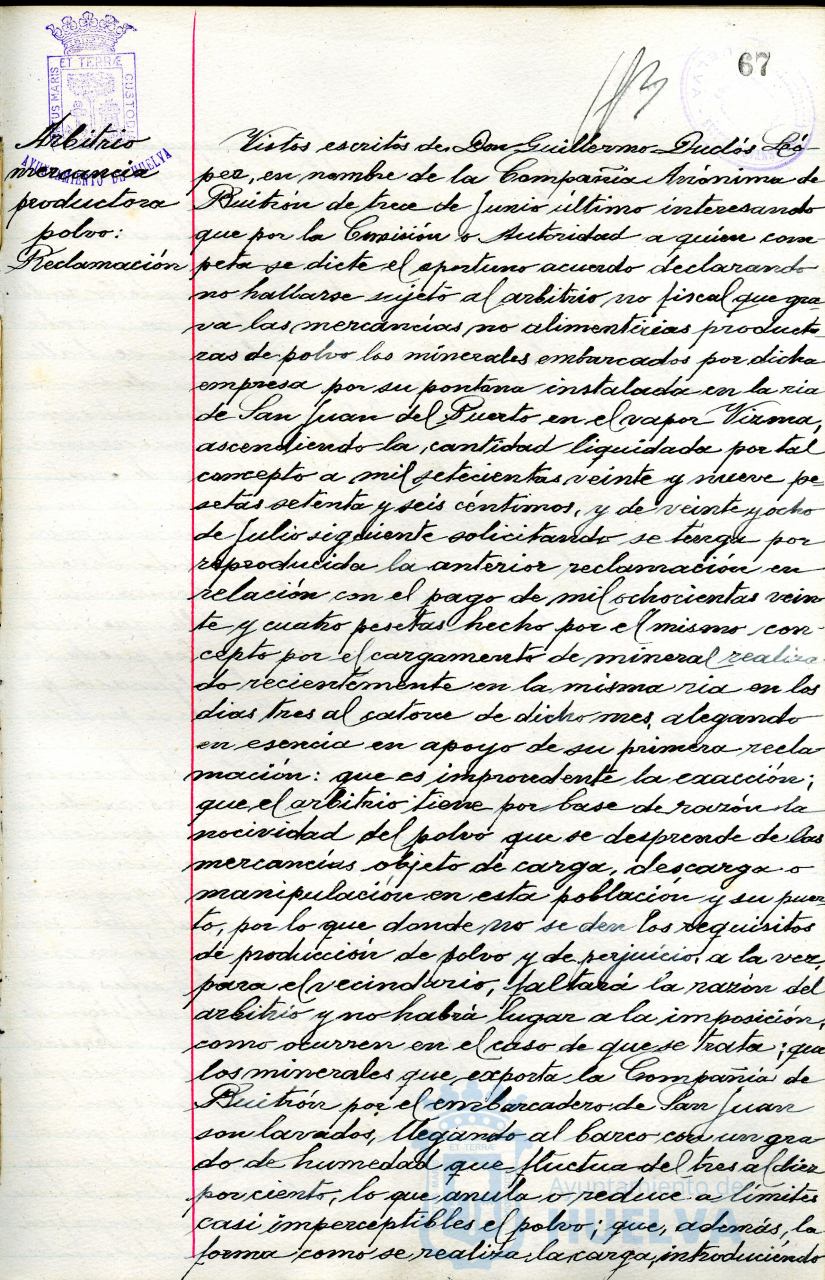 67
ET TERRÆ
PORTUS MARIS
CUSTODIA
AYUNTAMIENTO DE HUELVA
Arbitrio
mercancia
productora
polvo:
Reclamación
Vistos escritos de Don Guillermo Duclós Ló-
pez, en nombre de la Compañia Anónima de
Buitrón de trece de Junio último interesando
que por la Comisión o Autoridad a quien com-
peta se dicte el oportuno acuerdo declarando
no hallarse sujeto al arbitrio no fiscal que gra-
va las mercancías no alimenticias producto-
ras de polvo los minerales embarcados por dicha
empresa por su pontana instalada en la ria
de San Juan del Puerto en el vapor Virma,
ascendiendo la cantidad liquidada por tal
concepto a mil setecientas veinte y nueve pe-
setas setenta y seis céntimos, y de veinte y ocho
de Julio siguiente solicitando se tenga por
reproducida la anterior reclamación en
relación con el pago de mil ochocientas vein-
te y cuatro pesetas hecho por el mismo con-
cepto por el cargamento de mineral realiza-
do recientemente en la misma ria en los
dias tres al catorce de dicho mes, alegando
en esencia en apoyo de su primera recla-
mación: que es improcedente la exacción;
que el arbitrio tiene por base de razón la
nocividad del polvo que se desprende de las
mercancías objeto de carga, descarga o
manipulación en esta población y su puer-
to, por lo que donde no se den los requisitos
de producción de polvo y de perjuicio, a la vez,
para el vecindario, faltará la razón del
arbitrio y no habrá lugar a la imposición,
como ocurren en el caso de que se trata; que
los minerales que exporta la Compañia de
Buitrón por el embarcadero de San Juan
son lavados, llegando al barco con un gra-
do de humedad que fluctua del tres al diez
por ciento, lo que anula o reduce a límites
casi imperceptibles el polvo; que, además, la
forma como se realiza la carga, introduciendo
Ayuntamiento de
HUELVA